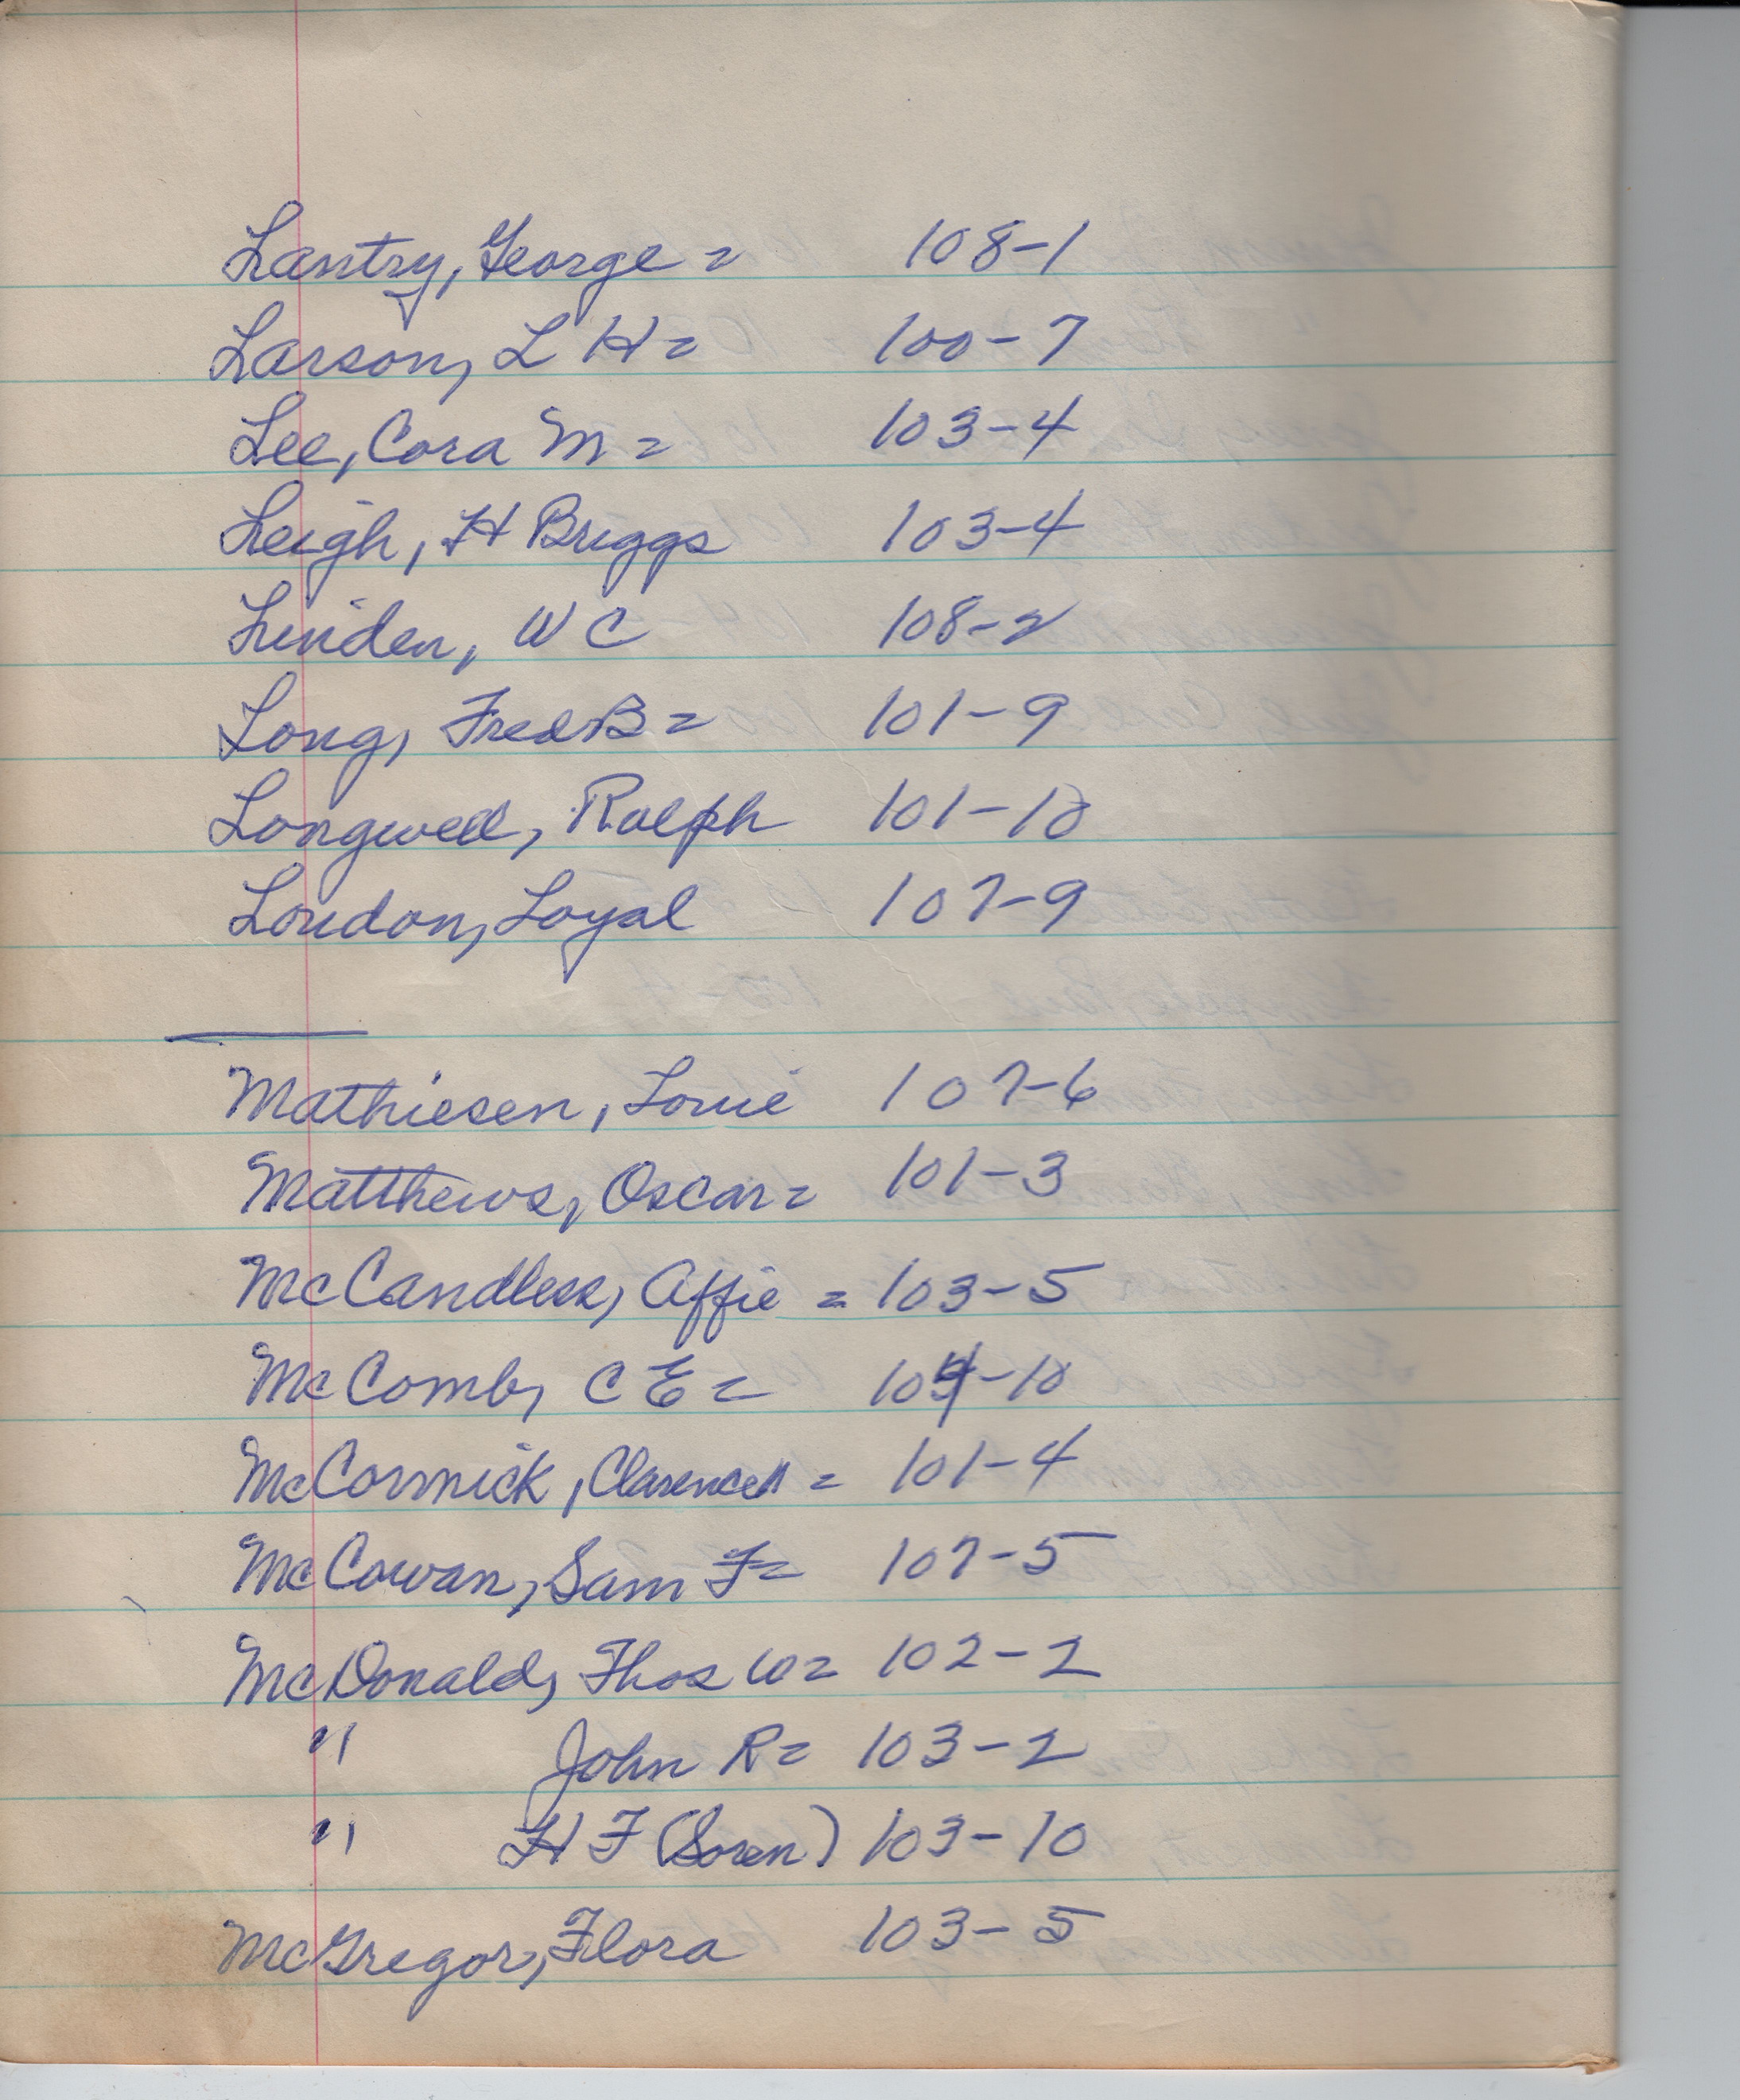 Lantry, George =  108-1
Larson, L H =  100-7
Lee, Cora M =  103-4
Leigh, H Briggs  103-4
Linden, W C  108-2
Long, Fred B =  101-9
Longwell, Ralph  101-10
Loudon, Loyal  107-9
Mathiesen, Louie  107-6
Matthews, Oscar =  101-3
McCandless, Affie =  103-5
McComb, C E =  104-10
McCormick, Clarence =  101-4
McCowan, Sam F =  107-5
McDonald, Thos W =  102-2
"  John R =  103-2
"  H F (Soren)  103-10
McGregor, Flora  103-5